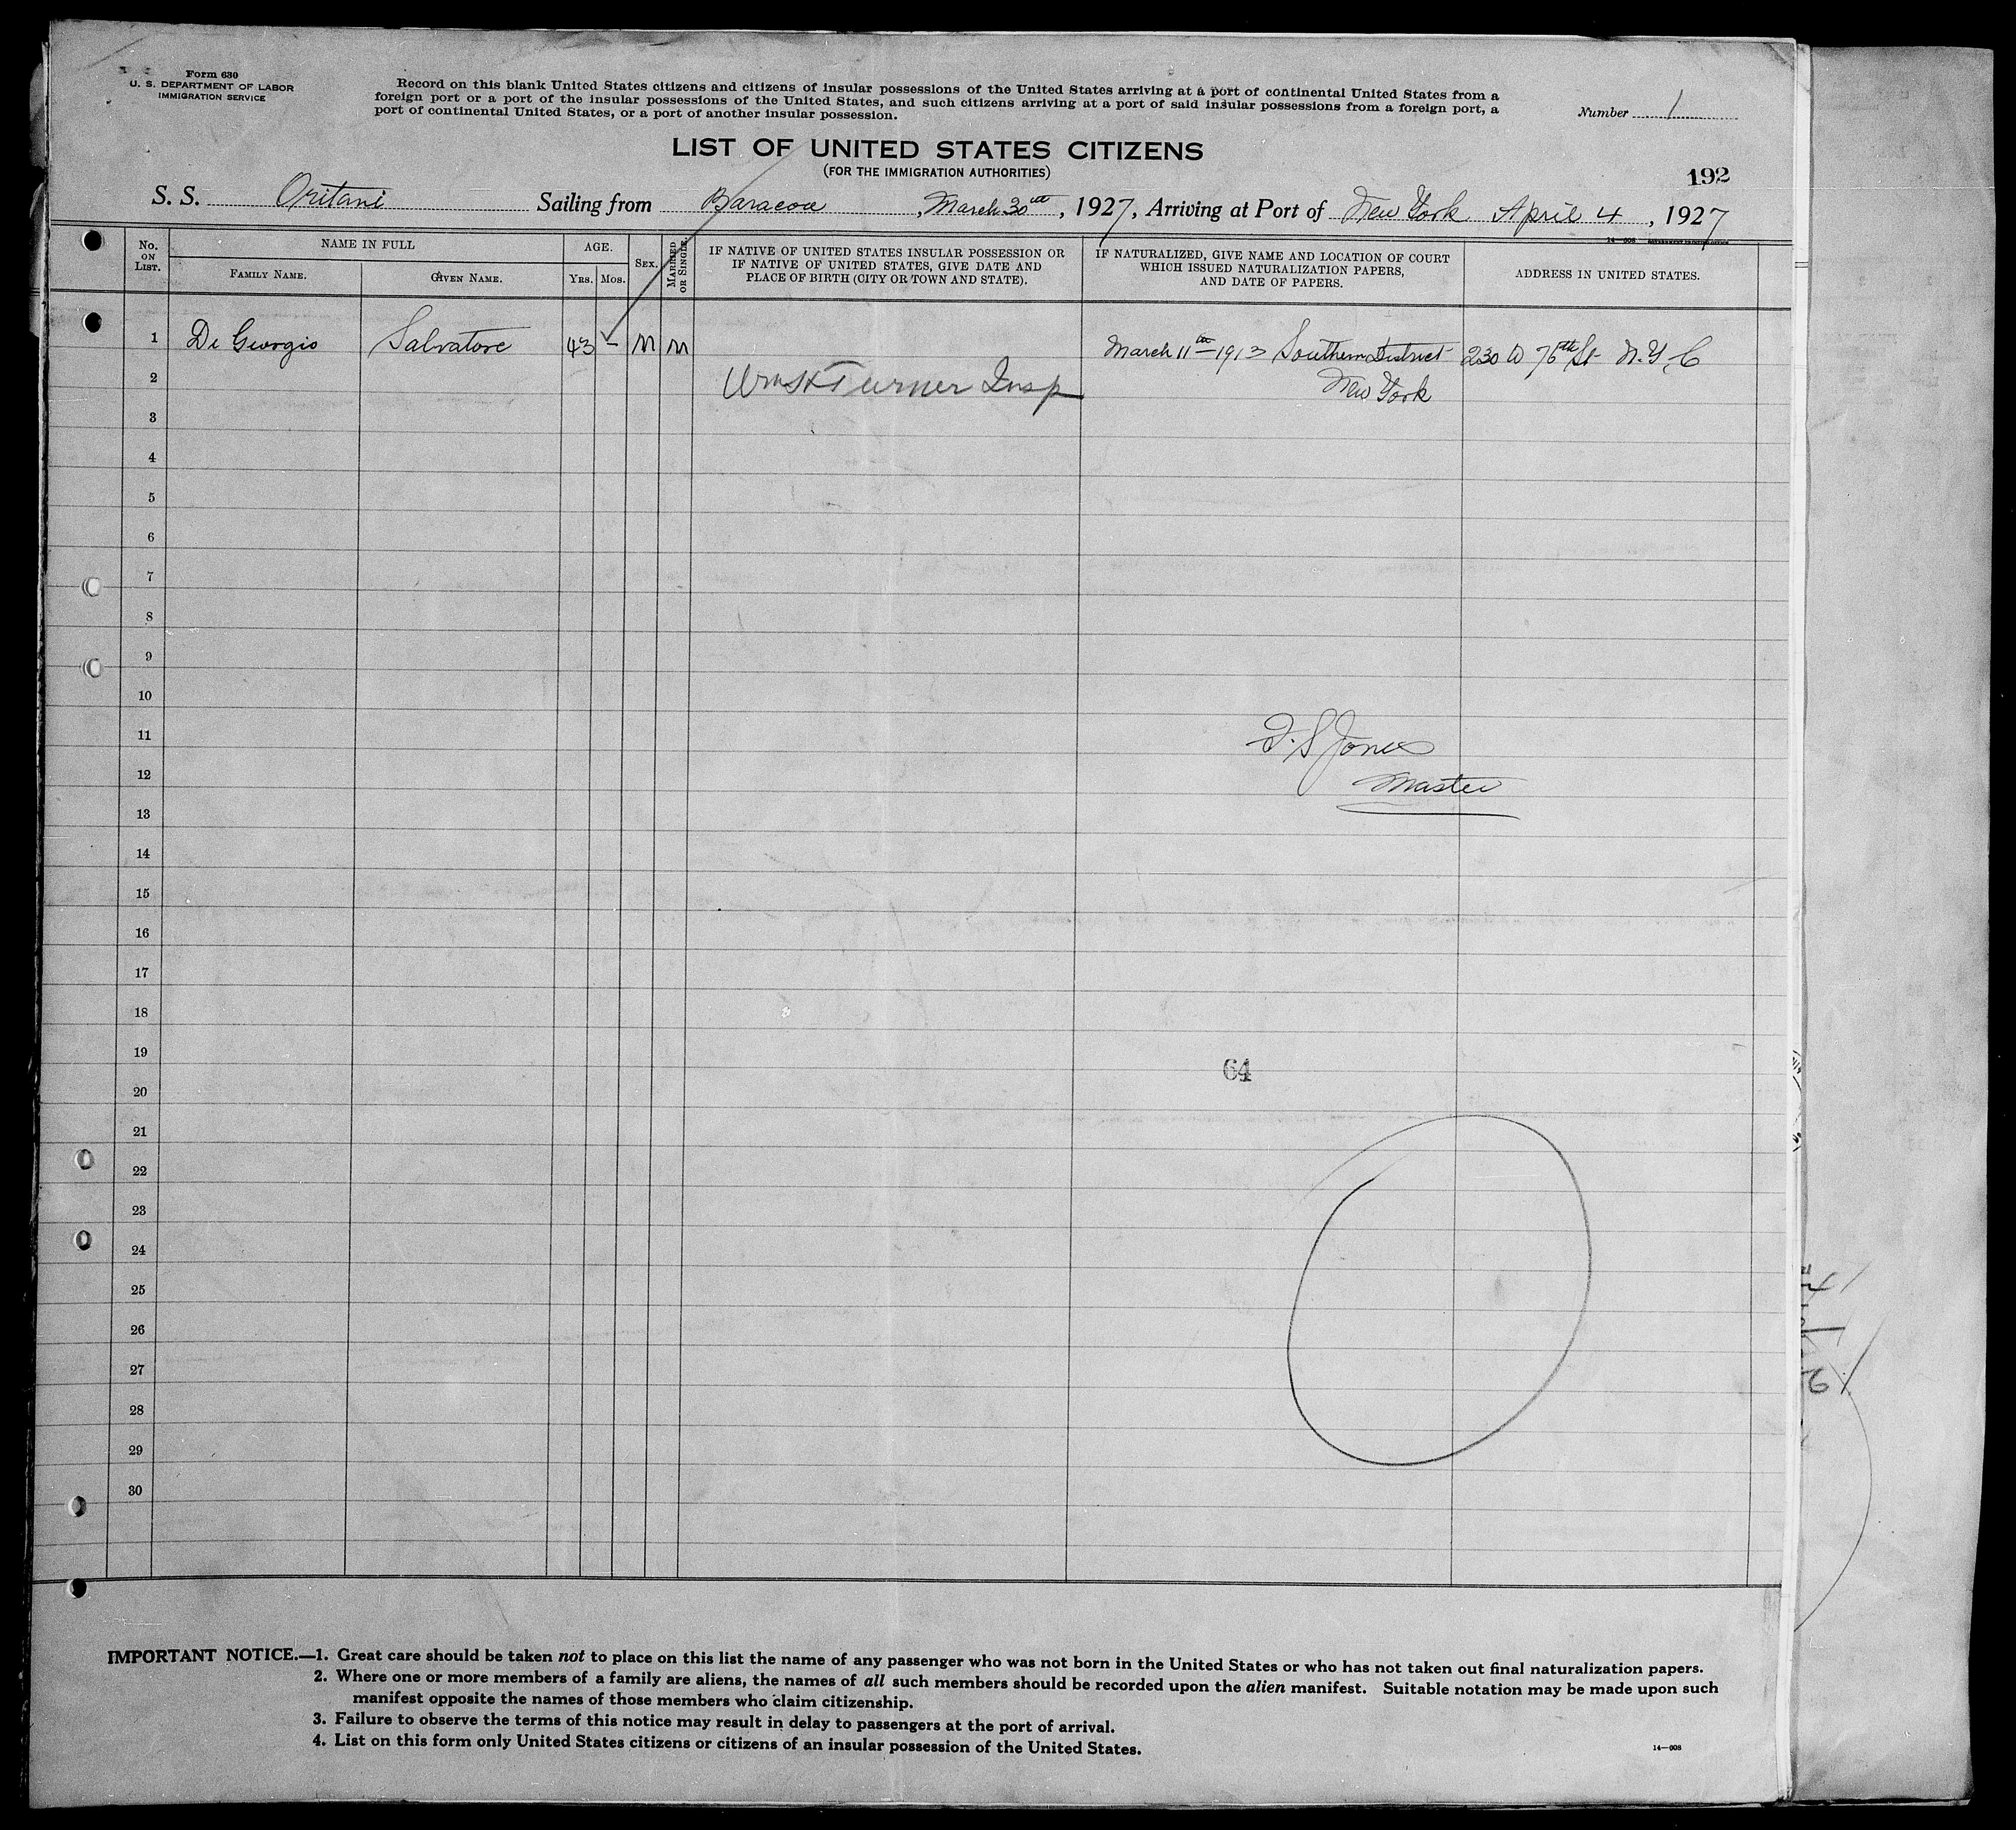 Form 630
U. S. DEPARTMENT OF LABOR
IMMIGRATION SERVICE
Record on this blank United States citizens and citizens of insular possessions of the United States arriving at a port of continental United States from a
foreign port or a port of the insular possessions of the United States, and such citizens arriving at a port of said insular possessions from a foreign port, a
port of continental United States, or a port of another insular possession.
Number 1
LIST OF UNITED STATES CITIZENS
(FOR THE IMMIGRATION AUTHORITIES)
192
S. S. Oritani Sailing from Baracoa, March 30th, 1927, Arriving at Port of New York April 4, 1927
14—608
No. ON LIST.
NAME IN FULL
FAMILY NAME.
GIVEN NAME.
AGE.
YRS.
MOS.
SEX.
MARRIED OR SINGLE.
IF NATIVE OF UNITED STATES INSULAR POSSESSION OR
IF NATIVE OF UNITED STATES, GIVE DATE AND
PLACE OF BIRTH (CITY OR TOWN AND STATE).
IF NATURALIZED, GIVE NAME AND LOCATION OF COURT
WHICH ISSUED NATURALIZATION PAPERS,
AND DATE OF PAPERS.
ADDRESS IN UNITED STATES.
1 Di Georgio Salvatore 43 – M M March 11th 1913 Southern District 230 W 76th St N.Y.C
New York
2 Turner Insp
3
4
5
6
7
8
9
10
11 S Jones
12 Master
13
14
15
16
17
18
19
64
20
21
22
23
24
25
26
27
28
29
30
IMPORTANT NOTICE.—1. Great care should be taken not to place on this list the name of any passenger who was not born in the United States or who has not taken out final naturalization papers.
2. Where one or more members of a family are aliens, the names of all such members should be recorded upon the alien manifest. Suitable notation may be made upon such
manifest opposite the names of those members who claim citizenship.
3. Failure to observe the terms of this notice may result in delay to passengers at the port of arrival.
4. List on this form only United States citizens or citizens of an insular possession of the United States.
14—608